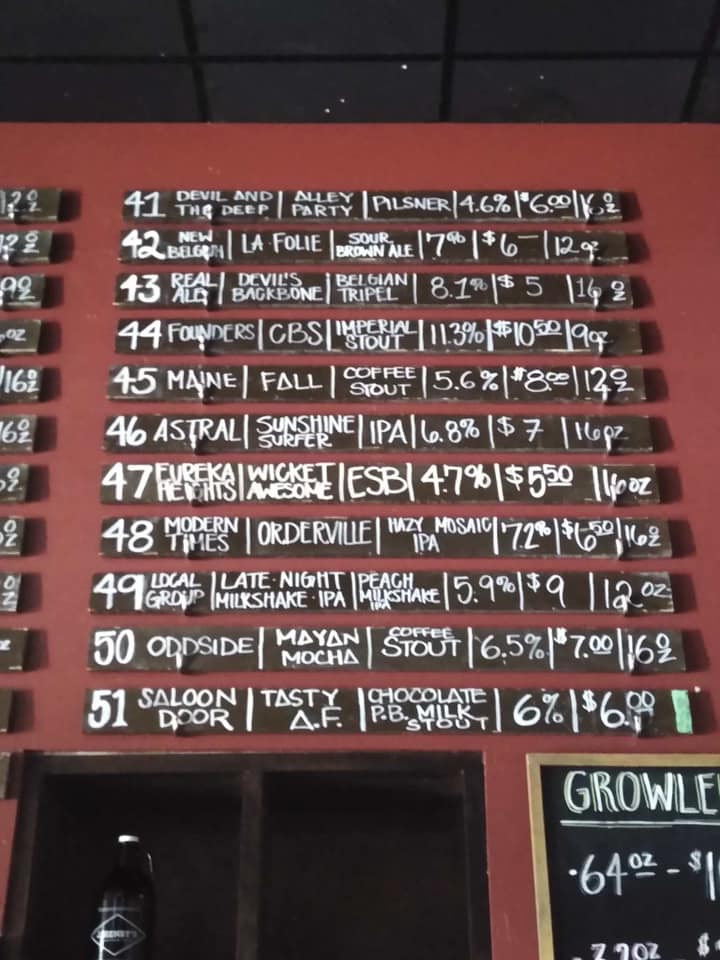 41 DEVIL AND THE DEEP | ALLEY PARTY | PILSNER | 4.6% | $6.00 | 16 OZ
42 NEW BELGIUM | LA FOLIE | SOUR BROWN ALE | 7% | $6— | 12 OZ
43 REAL ALE | DEVIL'S BACKBONE | BELGIAN TRIPEL | 8.1% | $5 | 16 OZ
44 FOUNDERS | CBS | IMPERIAL STOUT | 11.3% | $10.50 | 9 OZ
45 MAINE | FALL | COFFEE STOUT | 5.6% | $8.00 | 12 OZ
46 ASTRAL | SUNSHINE SURFER | IPA | 6.8% | $7 | 16 OZ
47 EUREKA HEIGHTS | WICKET AWESOME | ESB | 4.7% | $5.50 | 16 OZ
48 MODERN TIMES | ORDERVILLE | HAZY MOSAIC IPA | 7.2% | $6.50 | 16 OZ
49 LOCAL GROUP | LATE-NIGHT MILKSHAKE·IPA | PEACH MILKSHAKE IPA | 5.9% | $9 | 12 OZ
50 ODDSIDE | MAYAN MOCHA | COFFEE STOUT | 6.5% | $7.00 | 16 OZ
51 SALOON DOOR | TASTY A.F. | CHOCOLATE P.B. MILK STOUT | 6% | $6.00
GROWLE
·64 OZ - $1